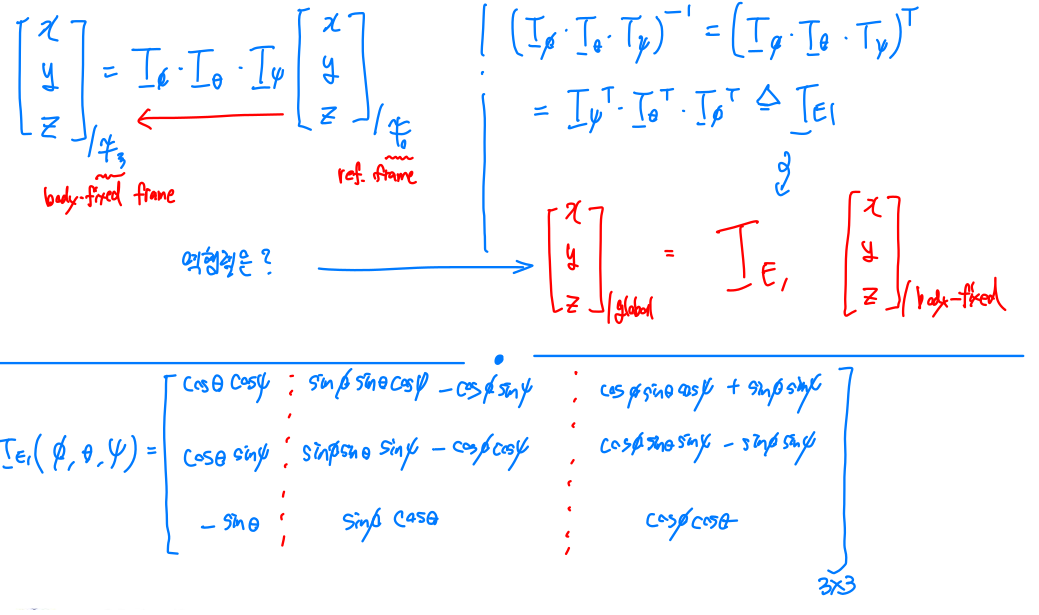 [x y z]/f₃ = T_φ · T_θ · T_ψ [x y z]/f₀
body-fixed frame
ref. frame
(T_φ · T_θ · T_ψ)⁻¹ = (T_φ · T_θ · T_ψ)ᵀ
= T_ψᵀ · T_θᵀ · T_φᵀ ≜ T_E1
역행렬은?
[x y z]/global = T_E1 [x y z]/body-fixed
T_E1(φ, θ, ψ) =
cosθ cosψ sinφ sinθ cosψ - cosφ sinψ cosφ sinθ cosψ + sinφ sinψ
cosθ sinψ sinφ sinθ sinψ - cosφ cosψ cosφ sinθ sinψ - sinφ sinψ
- sinθ sinφ cosθ cosφ cosθ
3×3